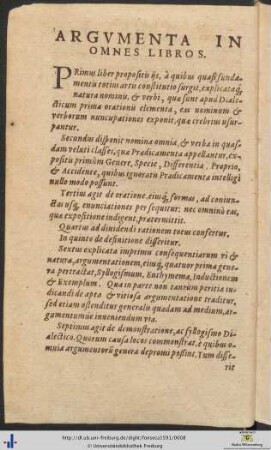 ARGVMENTA IN
OMNES LIBROS.
PRimus liber propositis ijs, à quibus quasi funda-
mentis totius artis constitutio surgit, explicataq́;
natura nominis, & verbi, quæ sunt apud Diale-
cticum prima orationis elementa, eas nominum &
verborum nuncupationes exponit, quæ crebrius usur-
pantur.
Secundus disponit nomina omnia, & verba in quas-
dam veluti classes, quæ Prædicamenta appellantur, ex-
positis primùm Genere, Specie, Differentia, Proprio,
& Accidente, quibus ignoratis Prædicamenta intelligi
nullo modo possunt.
Tertius agit de oratione, eiusq́; formas, ad coniun-
ctas usq́; enunciationes persequitur: nec omninò eas,
quæ expositione indigent, prætermittit.
Quartus ad diuidendi rationem totus confertur.
In quinto de definitione disseritur.
Sextus explicata imprimis consequentiarum vi &
natura, argumentationem, eiusq́; quatuor prima gene-
ra pertractat, syllogismum, Enthymema, Inductionem
& Exemplum. Qua in parte non tantùm peritia iu-
dicandi de apta & vitiosa argumentatione traditur,
sed etiam ostenditur generalis quædam ad medium, ar-
gumentumue inueniendum via.
Septimus agit de demonstratione, ac syllogismo Di-
alectico. Quorum causa locos commonstrat, è quibus o-
mnia argumentorũ genera depromi possint. Tum disse-
rit
http://dl.ub.uni-freiburg.de/diglit/fonseca1591/0008
© Universitätsbibliothek Freiburg